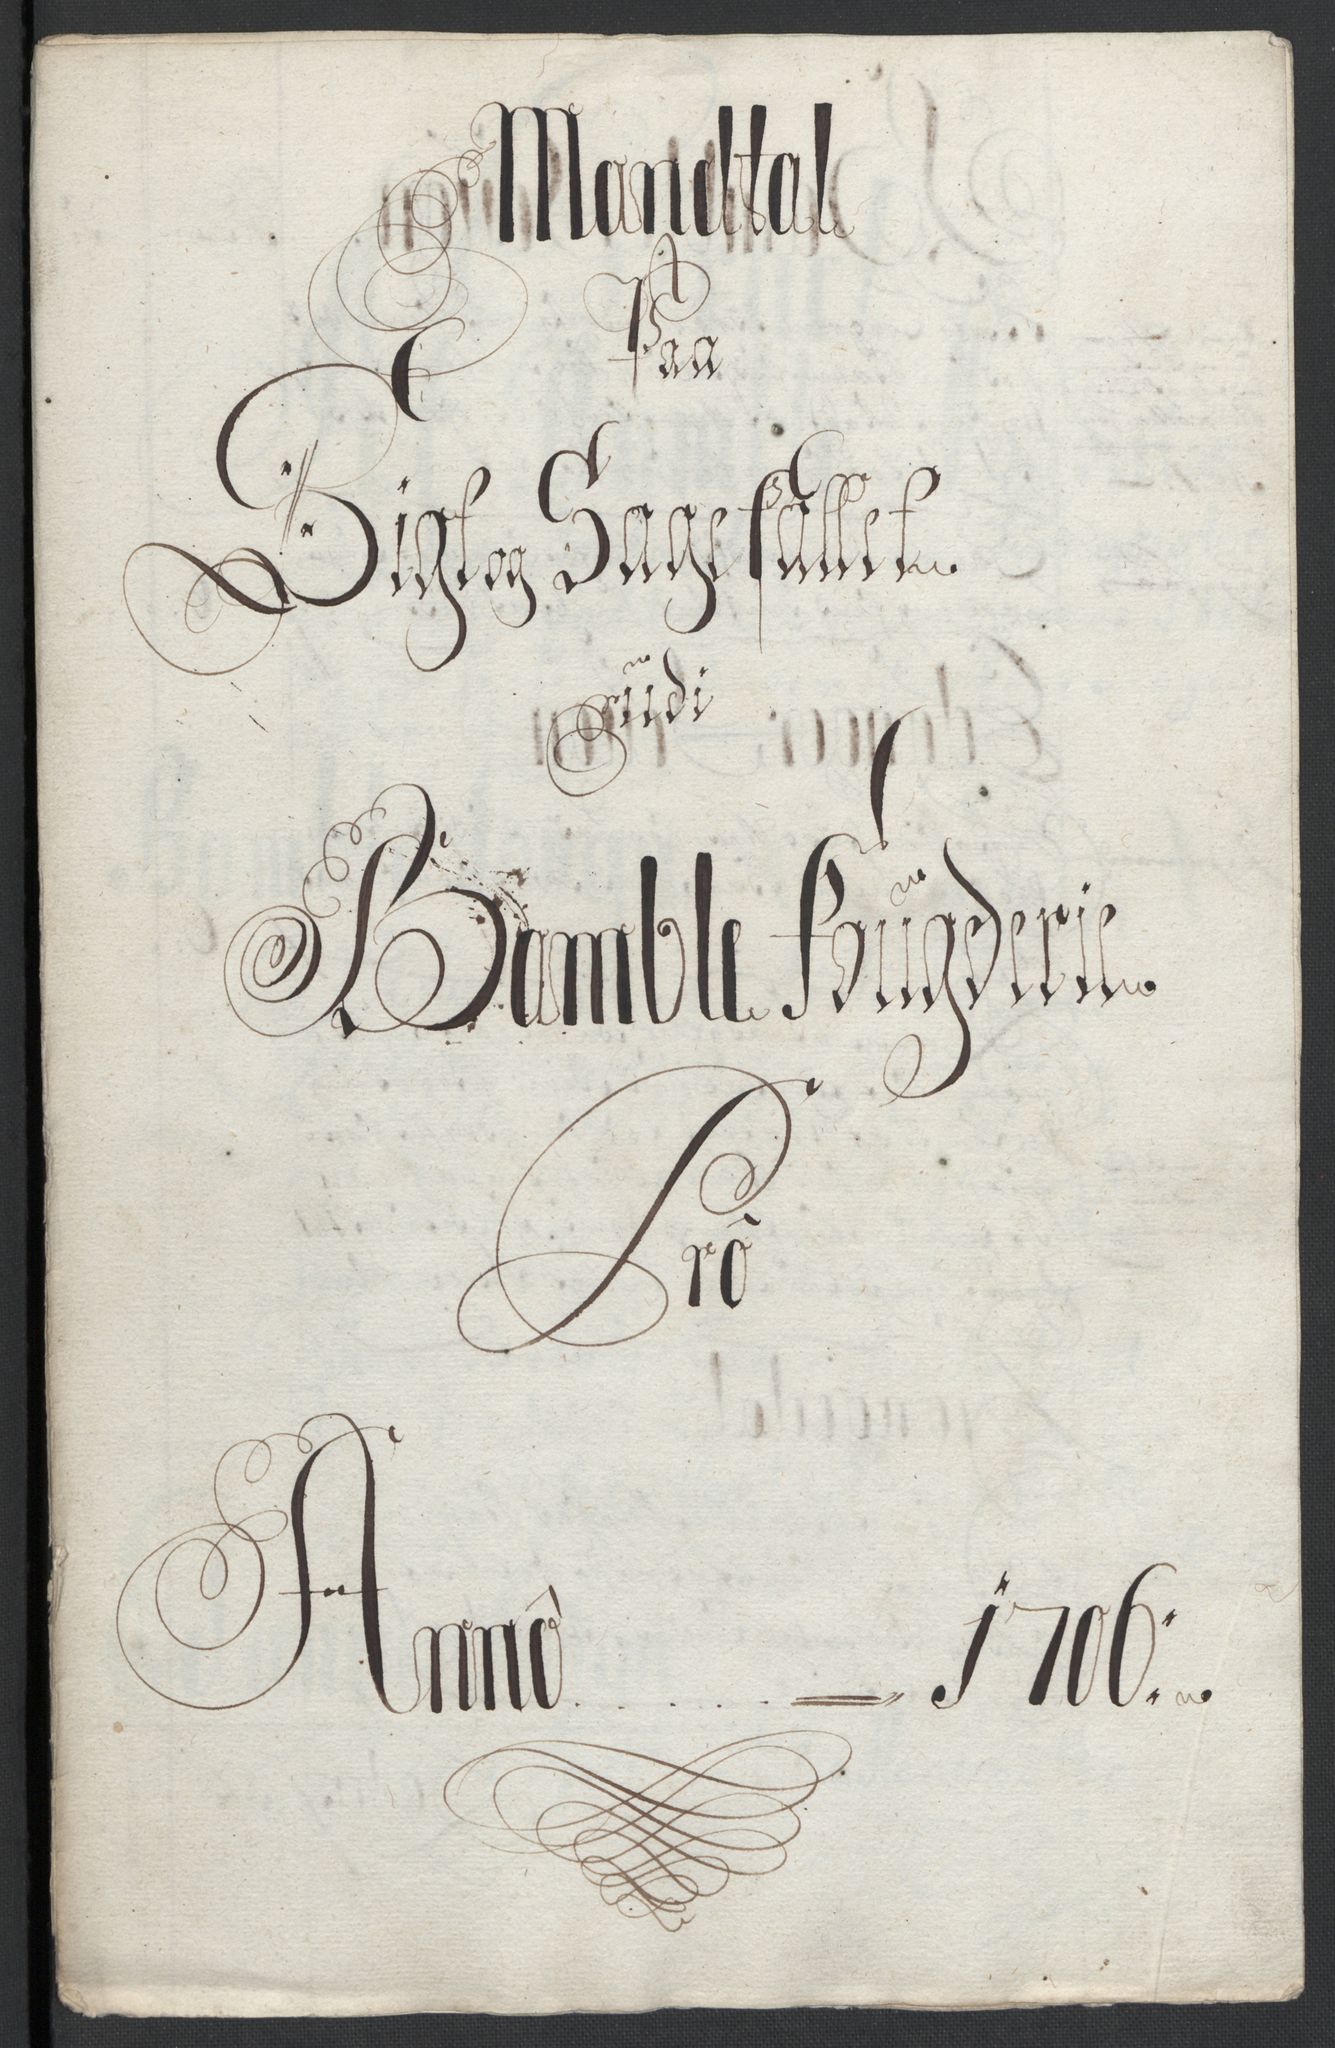 Mandtal
Paa
Sigt og Sagefallet
udi
Bamble Fougderie
Pro
Anno 1706